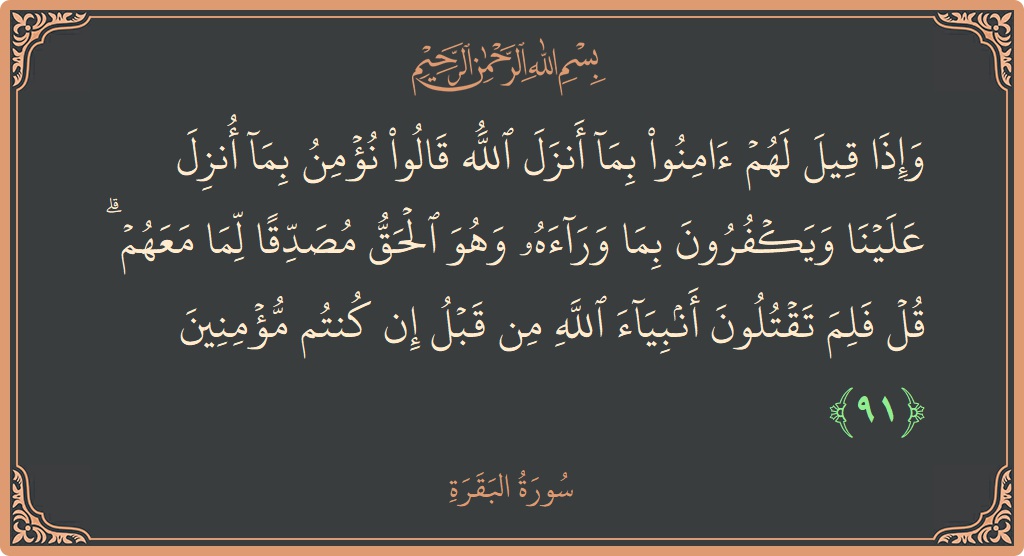 بِسْمِ اللهِ الرَّحْمٰنِ الرَّحِيْمِ
وَإِذَا قِيلَ لَهُمۡ ءَامِنُواْ بِمَآ أَنزَلَ ٱللَّهُ قَالُواْ نُؤۡمِنُ بِمَآ أُنزِلَ
عَلَيۡنَا وَيَكۡفُرُونَ بِمَا وَرَآءَهُۥ وَهُوَ ٱلۡحَقُّ مُصَدِّقٗا لِّمَا مَعَهُمۡۗ
قُلۡ فَلِمَ تَقۡتُلُونَ أَنۢبِيَآءَ ٱللَّهِ مِن قَبۡلُ إِن كُنتُم مُّؤۡمِنِينَ
﴿٩١﴾
سُورَةُ البَقَرَةِ